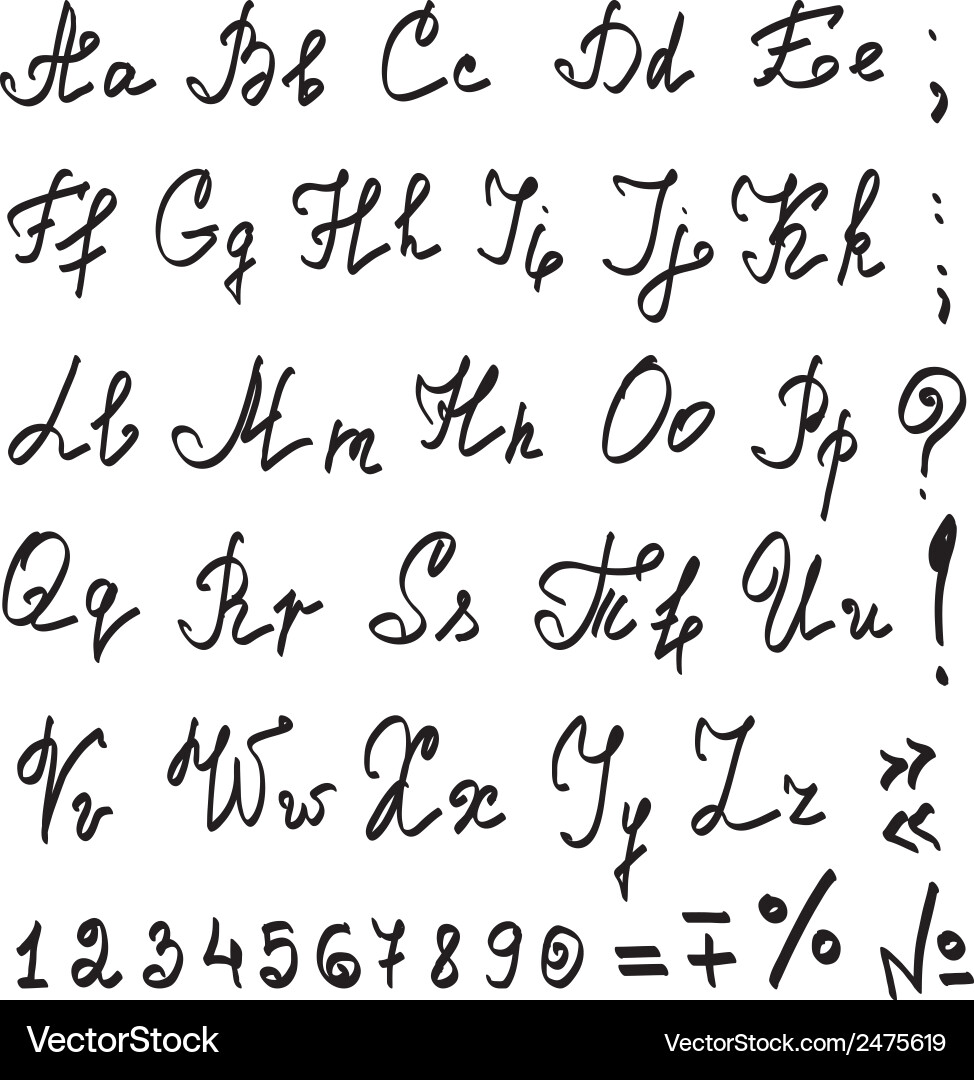 Aa Bb Cc Dd Ee ;
Ff Gg Hh Ii Jj Kk : ;
Ll Mm Nn Oo Pp ?
Qq Rr Ss Tt Uu !
Vv Ww Xx Yy Zz » «
1 2 3 4 5 6 7 8 9 0 = ∓ % №
VectorStock VectorStock.com/2475619